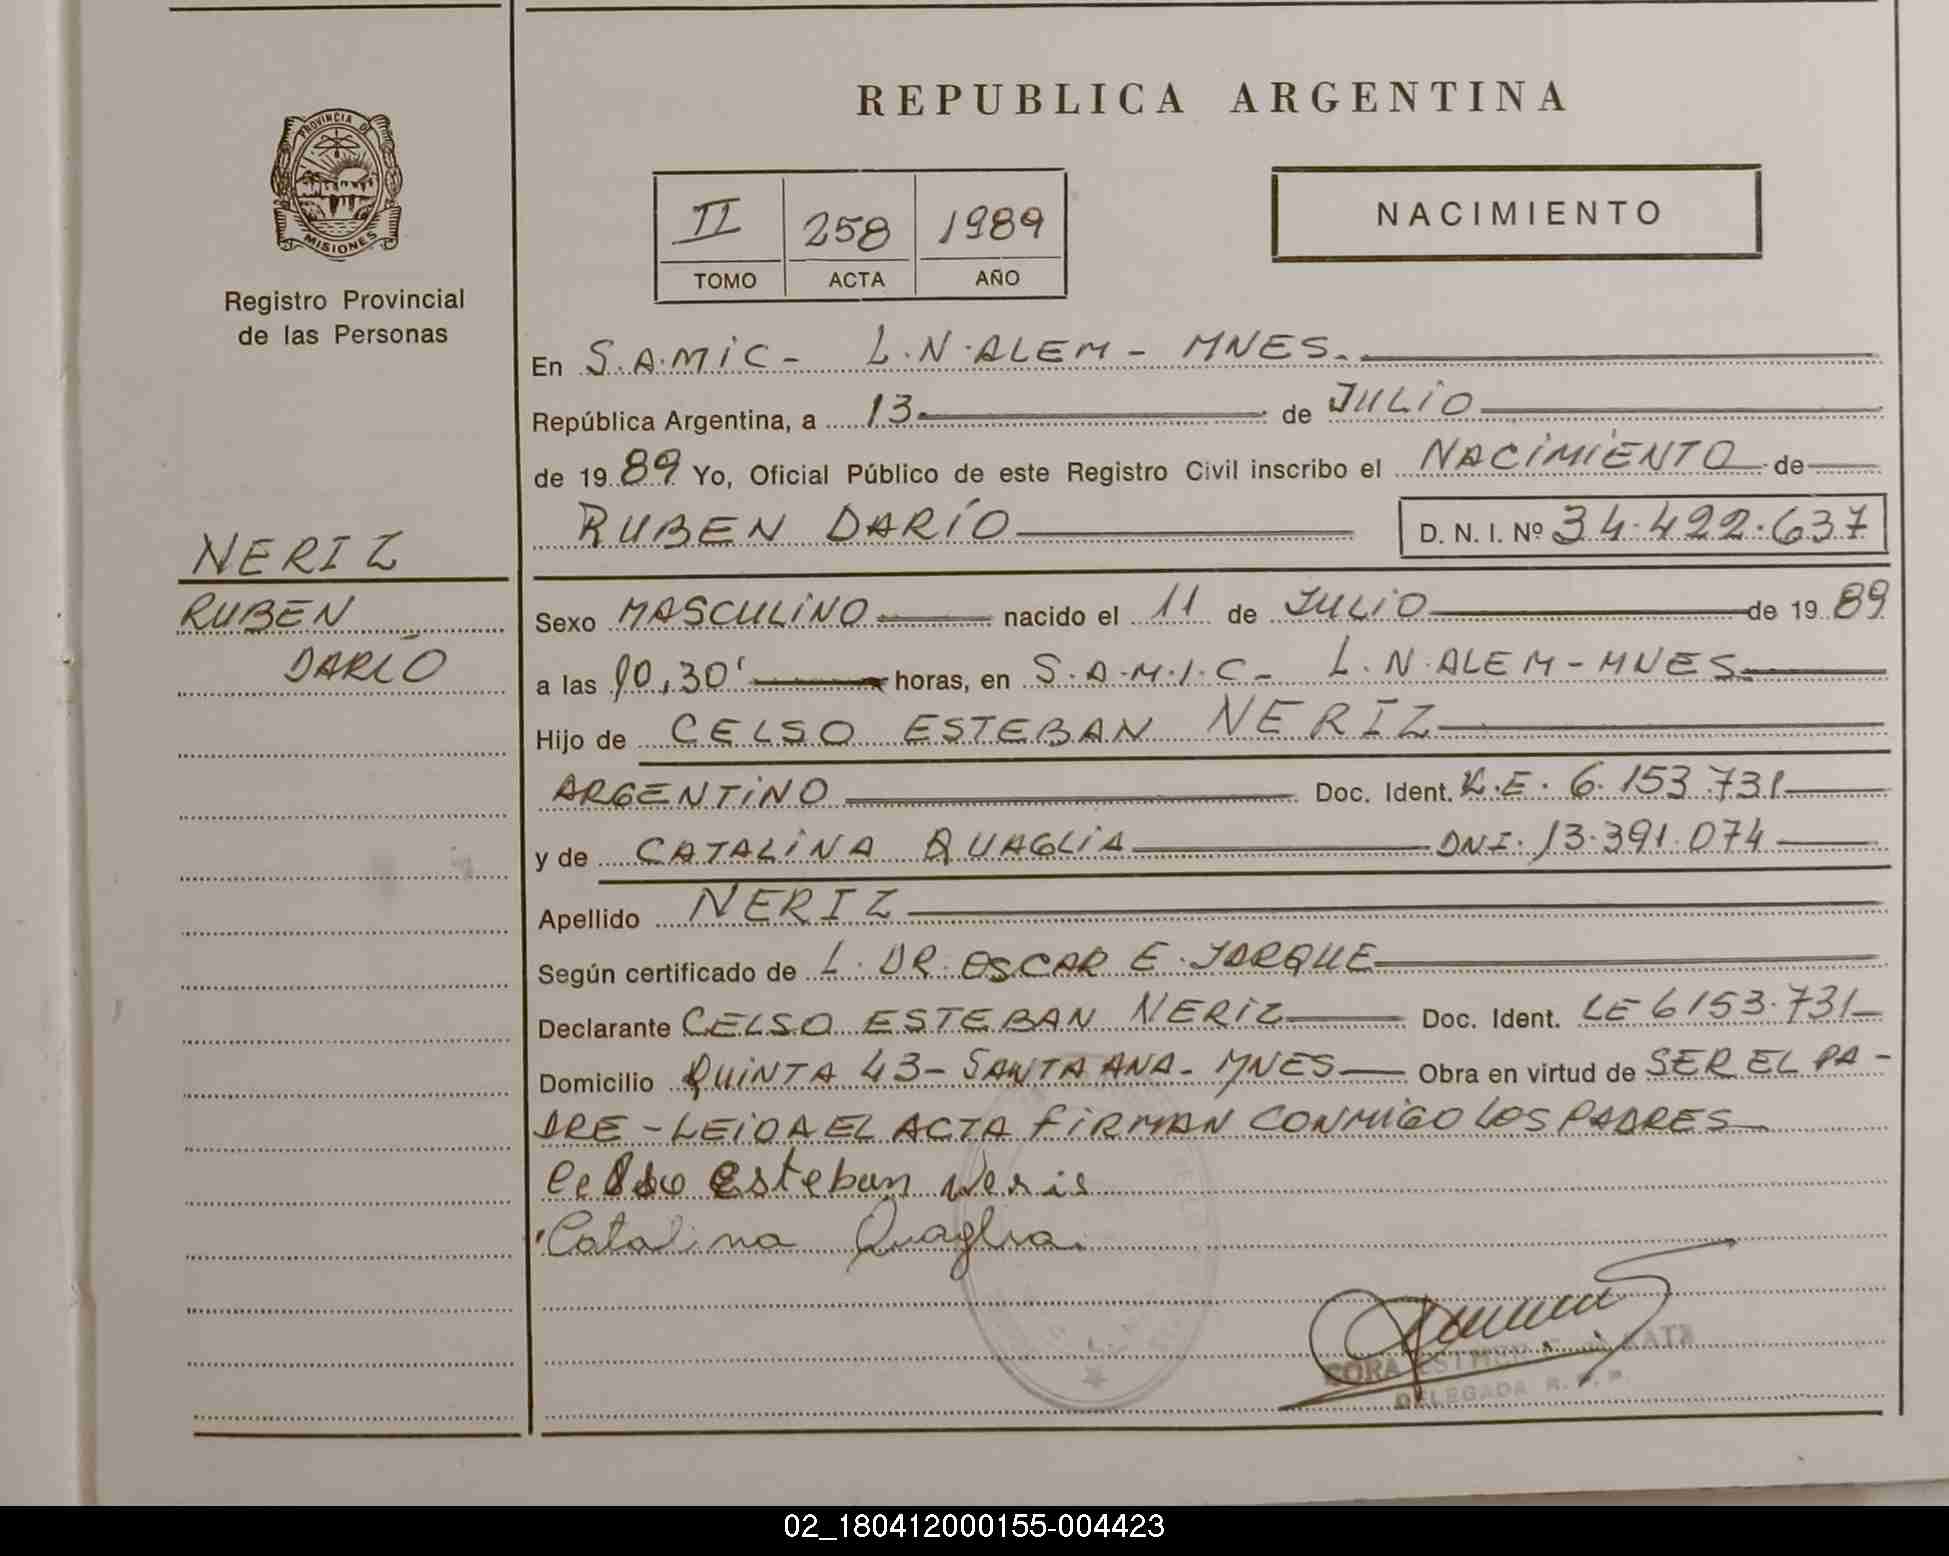 REPUBLICA ARGENTINA
PROVINCIA DE
MISIONES
Registro Provincial
de las Personas
II 258 1989
TOMO ACTA AÑO
NACIMIENTO
En S.A.MIC- L.N.ALEM- MNES.
República Argentina, a 13 de JULIO
de 19 89 Yo, Oficial Público de este Registro Civil inscribo el NACIMIENTO de
RUBEN DARÍO D. N. I. Nº 34.422.637
NERIZ
RUBEN
DARÍO
Sexo MASCULINO nacido el 11 de JULIO de 19 89
a las 10,30' horas, en S.A.M.I.C- L.N.ALEM-MNES
Hijo de CELSO ESTEBAN NERIZ
ARGENTINO Doc. Ident. L.E. 6.153.731
y de CATALINA QUAGLIA DNI. 13.391.074
Apellido NERIZ
Según certificado de L. DR. OSCAR E. JORQUE
Declarante CELSO ESTEBAN NERIZ Doc. Ident. LE 6153.731
Domicilio QUINTA 43- SANTA ANA- MNES Obra en virtud de SER EL PA-
DRE - LEIDA EL ACTA FIRMAN CONMIGO LOS PADRES
Celso Esteban Neris
Catalina Quaglia
DELEGADA R. P. P.
02_180412000155-004423